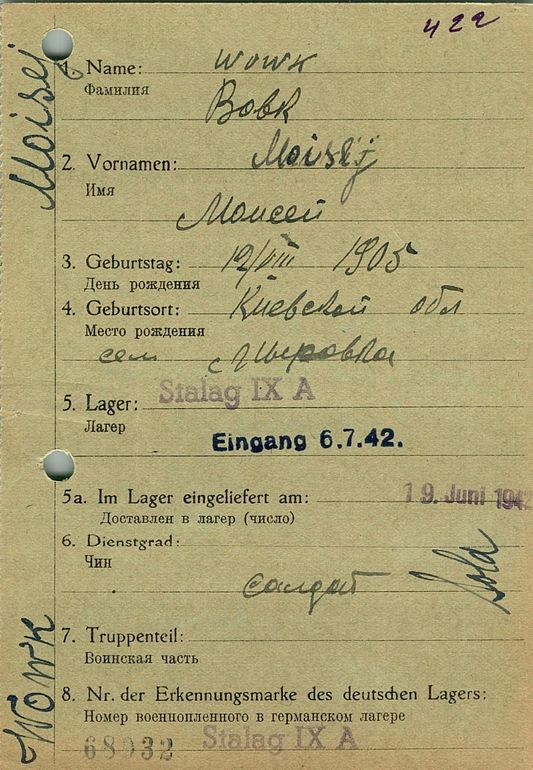 422
Moisej
1. Name: Wowk
Фамилия
Вовк
2. Vornamen: Moisej
Имя
Моисей
3. Geburtstag: 12/VIII 1905
День рождения
4. Geburtsort: Киевской обл
Место рождения
сел
Stalag IX A
5. Lager:
Лагерь
Eingang 6.7.42.
5a. Im Lager eingeliefert am: 19. Juni 1942
Доставлен в лагер (число)
6. Dienstgrad:
Чин
салдат Sold
7. Truppenteil:
Воинская часть
Wowk
8. Nr. der Erkennungsmarke des deutschen Lagers:
Номер военнопленного в германском лагере
68932 Stalag IX A